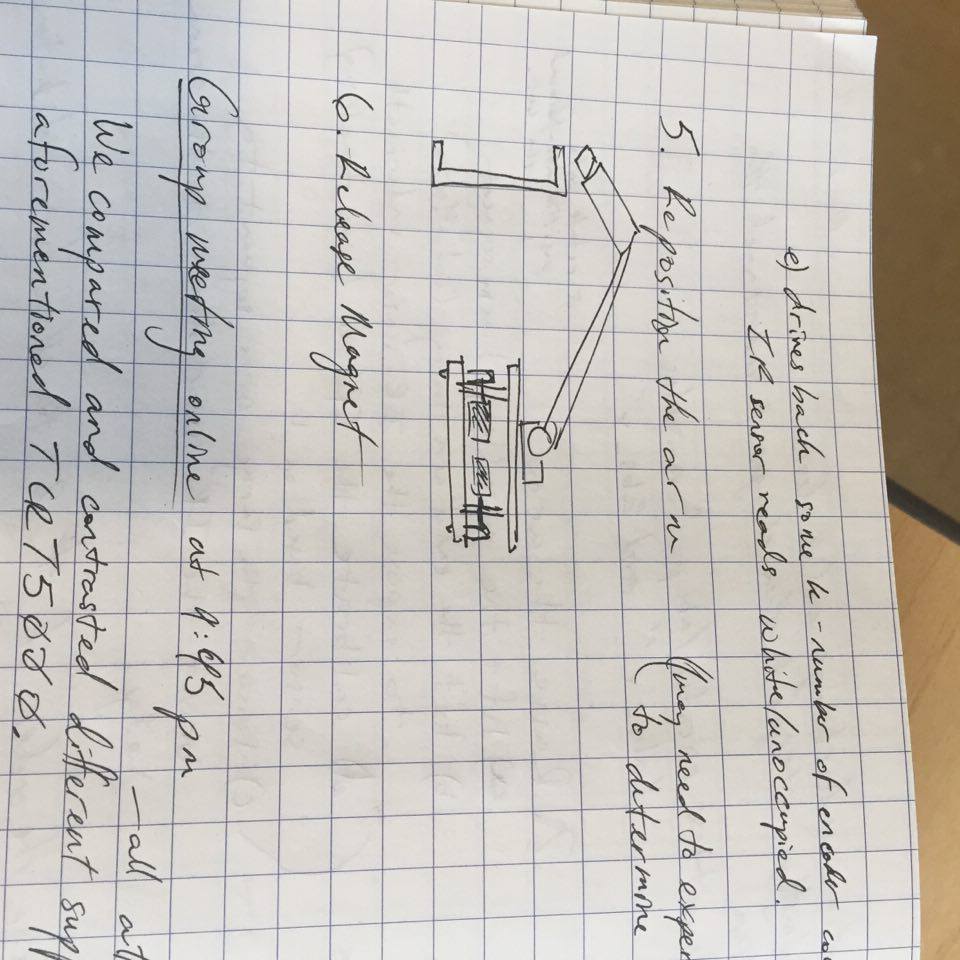 e) drives back some k-number of encoder cou
IR sensor reads white/unoccupied.
5. Reposition the arm (may need to exper
to determine
6. Release Magnet
Group meeting online at 9:45 pm
- all att
We compared and contrasted different supp
aforementioned TCRT5000.